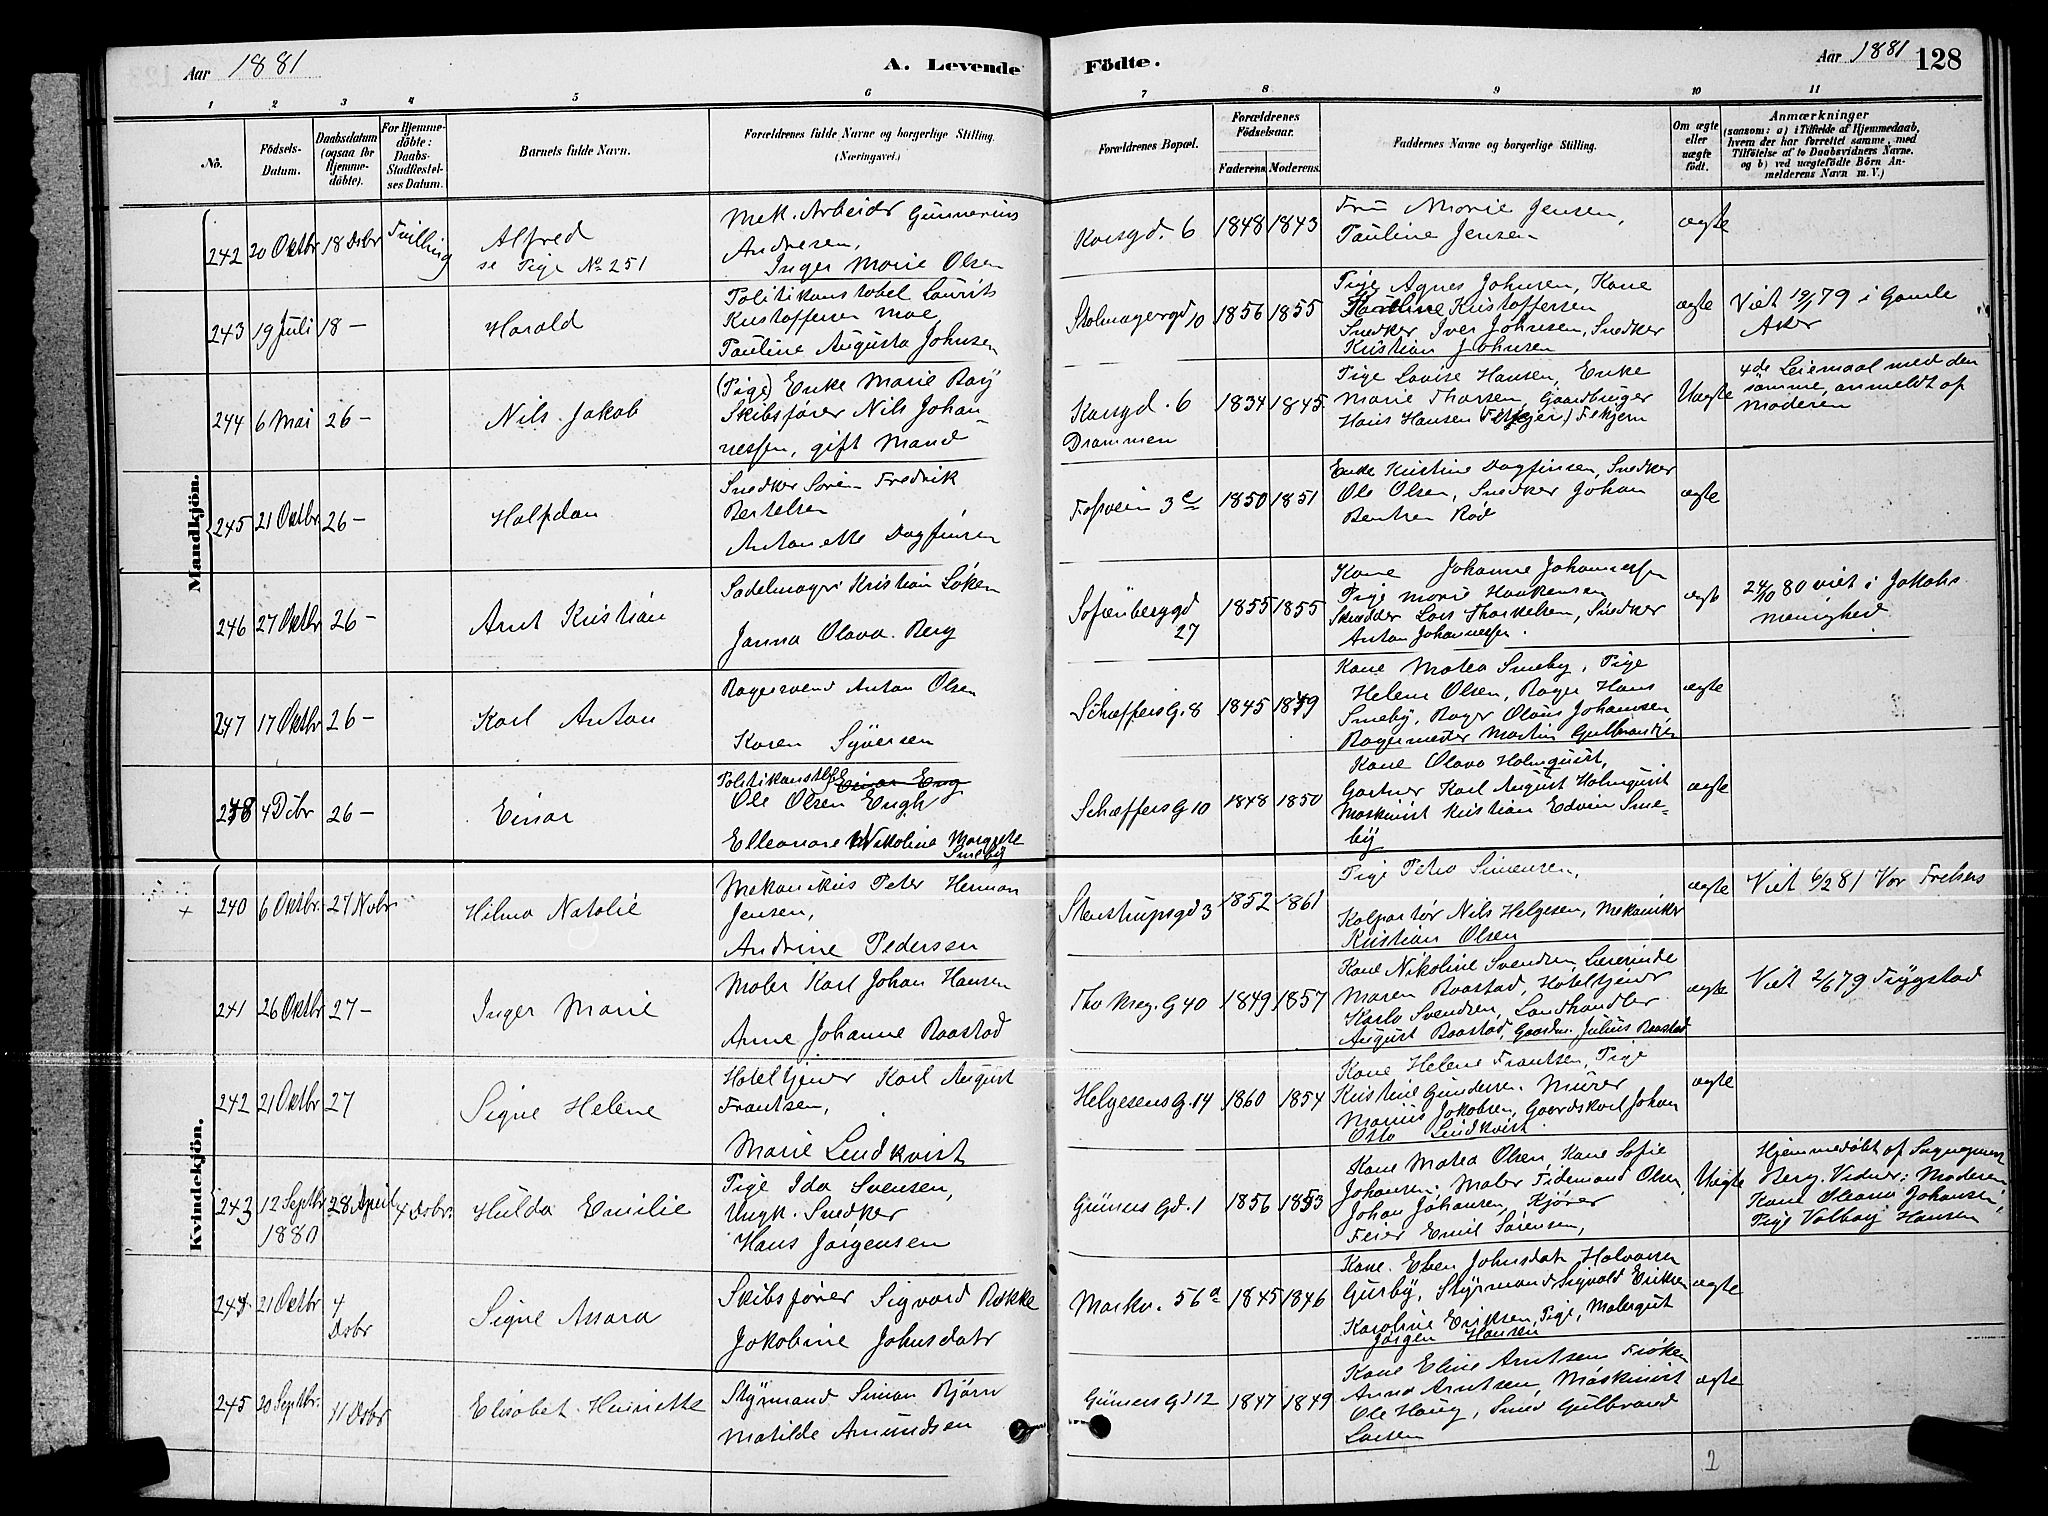 Aar 1881
A. Levende Födte.
Aar 1881 128
1 2 3 4 5 6 7 8 9 10 11
No.
Födsels-Datum.
Daabsdatum (ogsaa for Hjemme-döbte).
For Hjemme-döbte: Daabs-Stadfæstel-ses Datum.
Barnets fulde Navn.
Forældrenes fulde Navne og borgerlige Stilling. (Næringsvei.)
Forældrenes Bopæl.
Forældrenes Födselsaar.
Faderens. Moderens.
Faddernes Navne og borgerlige Stilling.
Om ægte eller uægte födt.
Anmærkninger
(saasom: a) i Tilfælde af Hjemmedaab, hvem der har forrettet samme, med Tilföielse af to Daabsvidners Navne. og b) ved uægtefödte Börn An-melderens Navn m. V.)
Mandkjön.
242 20 Oktbr 18 Dsbr Tvilling
Alfred
se Pige No 251
Mek. Arbeidr Gunnerius
Andresen,
Inger Marie Olsen
Korsgd. 6 1848 1843
Fru Marie Jensen,
Pauline Jensen
ægte
243 19 Juli 18 –
Harald
Politikonstabel Laurits
Kristoffersen Moe
Pauline Augusta Johnsen
Stolmagergd 10 1856 1855
Pige Agnes Johnsen, Kone
Karoline Kristoffersen
Snedker Iver Johnsen, Snedker
Kristian Johnsen
ægte
Viet 19/1 79 i Gamle
Aker
244 6 Mai 26 –
Nils Jakob
(Pige) Enke Marie Bay
Skibsfører Nils Johan-
nessen, gift Mand
Korsgd. 6
Drammen
1834 1845
Pige Lovise Hansen, Enke
Marie Thorsen, Gaardbruger
Hans Hansen Feskjern
Uægte
4de Leiemaal med den
samme, anmeldt af
Moderen
245 21 Oktbr 26 –
Halfdan
Snedker Søren Fredrik
Bertelsen
Antonette Dagfinsen
Fossveien 3c 1850 1851
Enke Kristine Dagfinsen, Snedker
Ole Olsen, Snedker Johan
Bentsen Rød
ægte
246 27 Oktbr 26 –
Arnt Kristian
Sadelmager Kristian Løken
Janna Olava Berg
Sofienberggd
27
1855 1855
Kone Johanne Johannessen
Pige Marie Haakensen
Skrædder Lars Thorkelsen, Snedker
Anton Johannessen.
ægte
24/10 80 viet i Jakobs
menighed
247 17 Oktbr 26 –
Karl Anton
Bagersvend Anton Olsen
Karen Syversen
Schæffers G. 8 1845 1849
Kone Matea Smeby, Pige
Helene Olsen, Bager Hans
Smeby, Bager Olaus Johansen,
Bagermester Martin Gulbrandsen
ægte
248 4 Oibr 26 –
Einar
Politikonstbl
Ole Olsen Engh
Elleonore Nikoline Margrete
Smeby
Schæffers G 10 1848 1850
Kone Olava Holmquist,
Gartner Karl August Holmquist
Maskinist Kristian Edvin Sme-
by
ægte
Kvindekjön.
240 6 Oktbr. 27 Nvbr
Hilma Natalie
Mekanikus Peter Herman
Jensen,
Andrine Pedersen
Stenstrupsgd 3 1852 1861
Pige Petra Simensen,
Kolportør Nils Helgesen, Mekaniker
Kristian Olsen
ægte
Viet 6/2 81 Vor Frelsers
241 26 Oktbr 27 –
Inger Marie
Maler Karl Johan Hansen
Anne Johanne Raastad
Tho Mey. G 40 1849 1857
Kone Nikoline Svendsen Lærerinde
Maren Raastad, Hotelkjener
Karlo Svendsen, Landhandler
August Raastad, Gaardm. Julius Raastad
ægte
Viet 2/6 79 Trygstad
242 21 Oktbr 27
Signe Helene
Hoteltjener Karl August
Frantsen,
Marie Lindkvist
Helgesens G. 14 1860 1854
Kone Helene Frantsen, Pige
Kristine Gundersen. Murer
Marius Jakobsen, Gaardskarl Johan
Otto Lindkvist.
ægte
243 12 Septbr
1880
28 April 4 Dsbr.
Hulda Emilie
Pige Ida Svensen,
Ungk. Snedker
Hans Jørgensen
Güners Gd. 1 1856 1853
Kone Matea Olsen Kone Sofie
Johansen. Maler Tidemand Olsen,
Johan Johansen, Kjører
Feier Emil Sørensen,
Uægte
Hjemmedøbt af Sogneprest
Berg. Vidner: Moderen
Kone Oleana Johansen,
Pige Valborg Hansen
244 21 Oktbr 4
Dsbr
Signe Amara
Skibsfører Sigvard Bakke
Jakobine Johnsdatr
Markv. 56a 1845 1846
Kone. Eben Johnsdatr Halvorsen
Gusby, Styrmand Sigvald Eriksen
Karoline Eriksen, Pige, Malergut
Jørgen Hansen
ægte
245 20 Septbr. 11 Dsbr
Elisabet Henriette
Styrmand Simon Bjørn
Matilde Amundsen
Güners Gd 12 1847 1849
Kone Eline Arntsen Frøken
Anna Arntsen, Maskinist
Ole Haug, Smed Gulbrand
Larsen
ægte
2